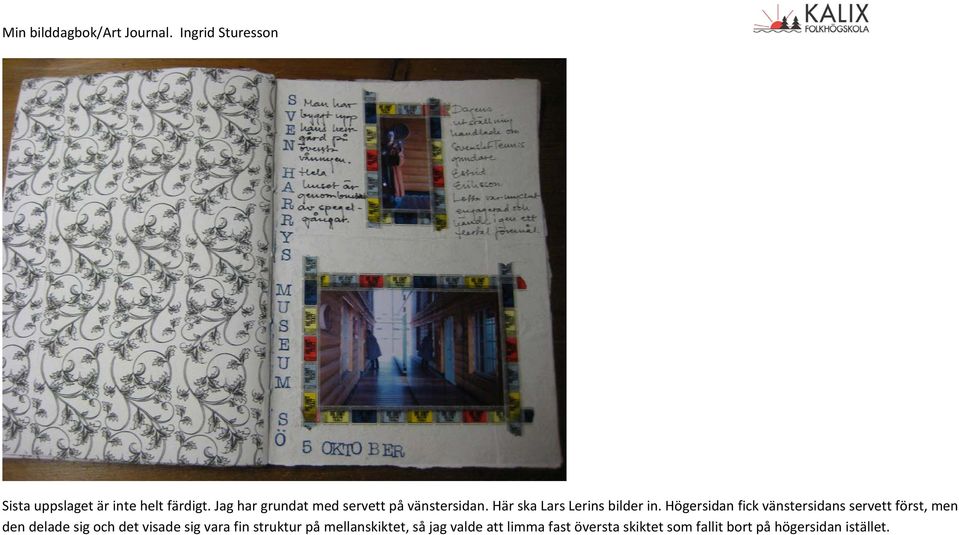 Min bilddagbok/Art Journal. Ingrid Sturesson
KALIX
FOLKHÖGSKOLA
SVEN HARRYS MUSEUM SÖ
Man har
byggt upp
hans herr-
gård på
översta
våningen.
Hela
huset är
genombrutet
av spegel-
gångar.
Darens
utställning
handlade om
Svenskt Tenns
grundare
Estrid
Ericson.
engagerad och
5 OKTOBER
Sista uppslaget är inte helt färdigt. Jag har grundat med servett på vänstersidan. Här ska Lars Lerins bilder in. Högersidan fick vänstersidans servett först, men
den delade sig och det visade sig vara fin struktur på mellanskiktet, så jag valde att limma fast översta skiktet som fallit bort på högersidan istället.